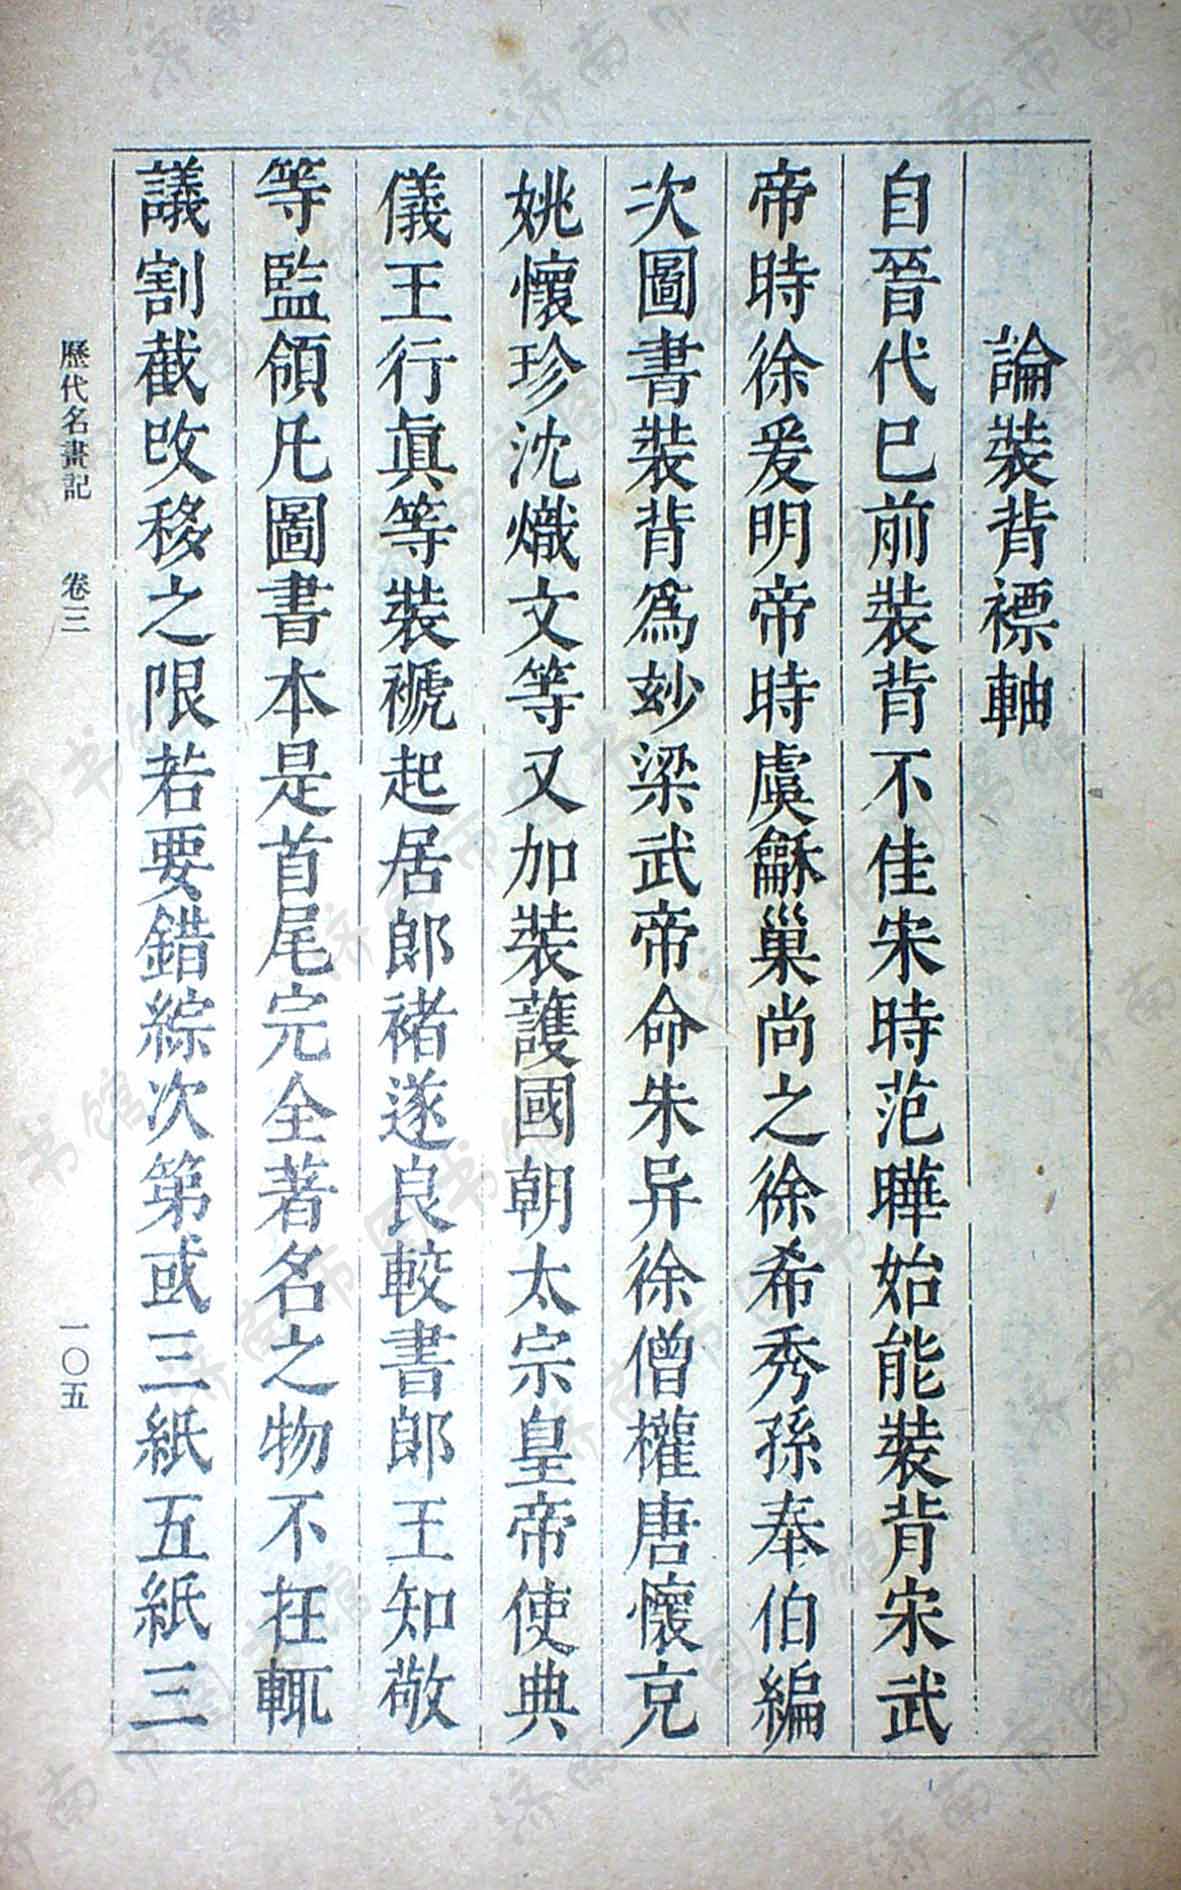 論裝背褾軸
自晉代已前裝背不佳宋時范曄始能裝背宋武
帝時徐爰明帝時虞龢巢尚之徐希秀孫奉伯編
次圖書裝背爲妙梁武帝命朱异徐僧權唐懷克
姚懷珍沈熾文等又加裝護國朝太宗皇帝使典
儀王行眞等裝褫起居郎褚遂良較書郎王知敬
等監領凡圖書本是首尾完全著名之物不在輒
議割截改移之限若要錯綜次第或三紙五紙三
歷代名畫記 卷三 一〇五
济南市图书馆